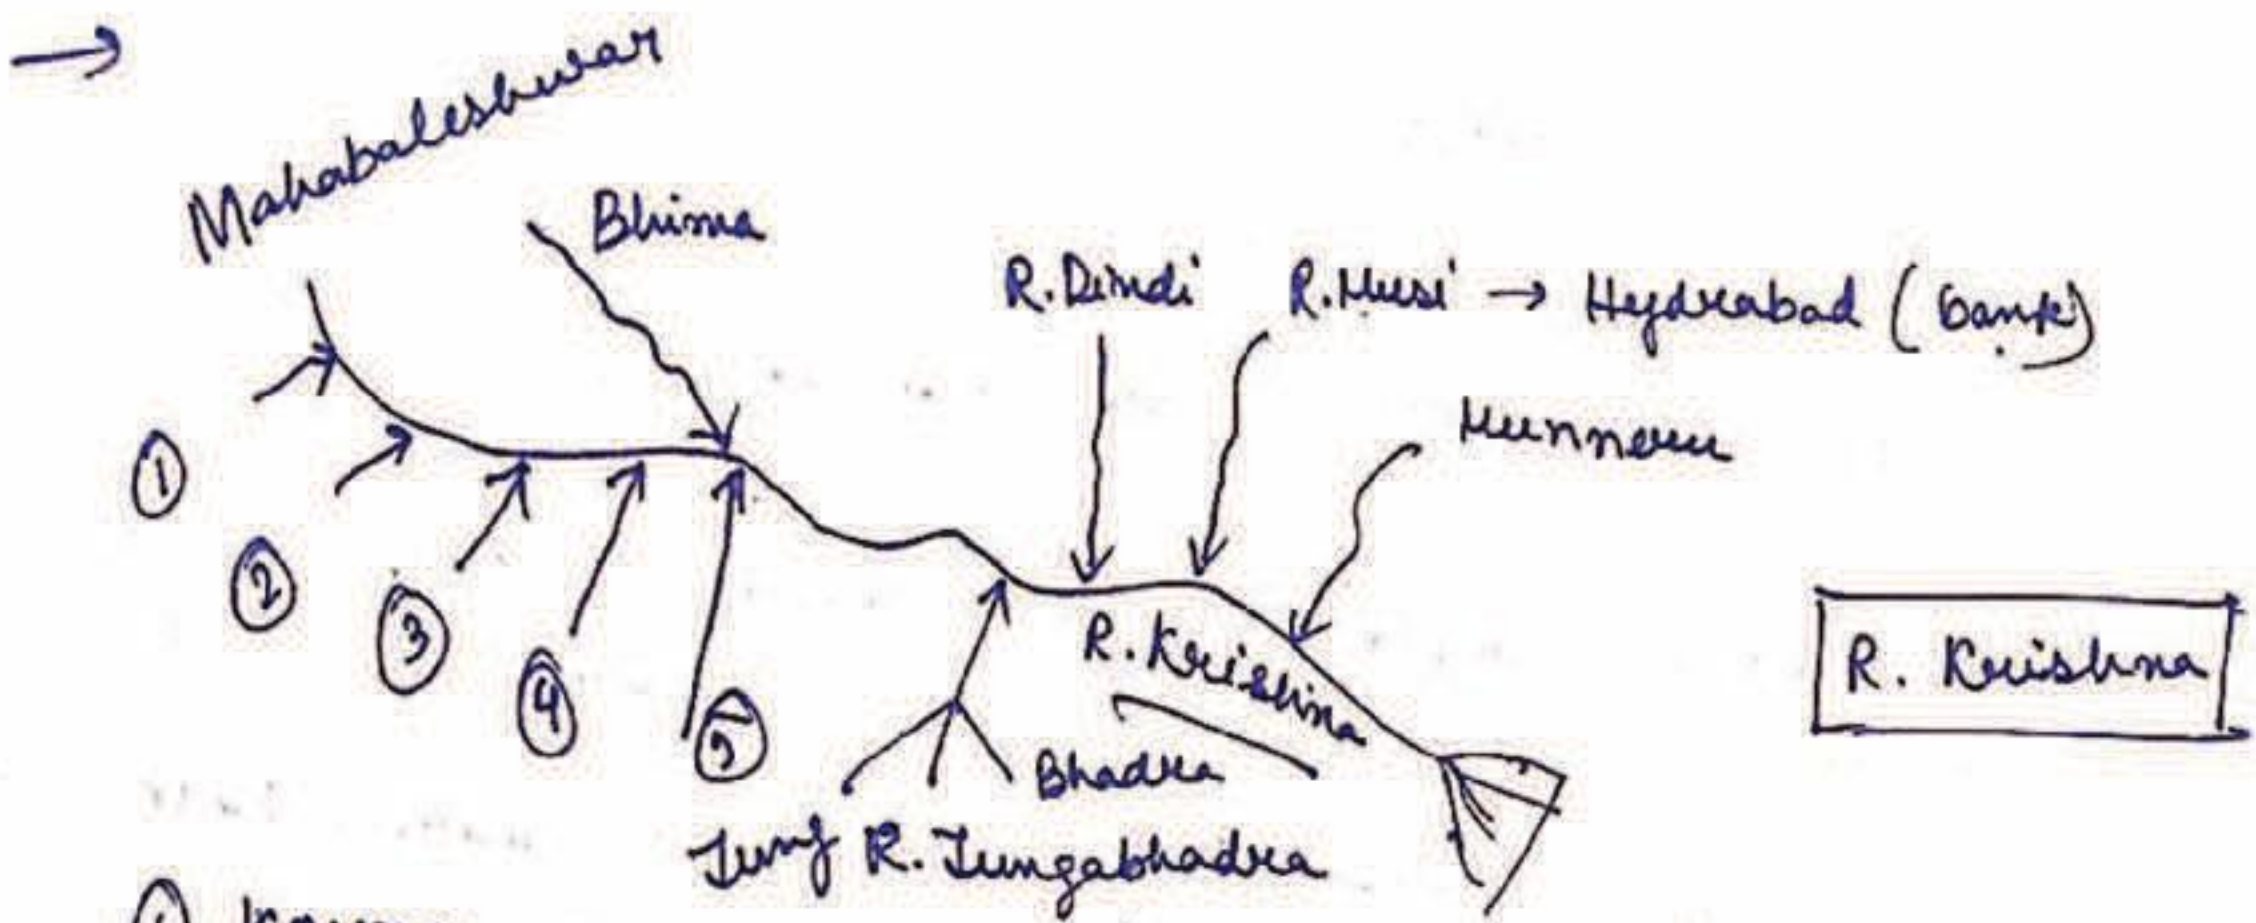 → Mahabaleshwar
Bhima
R. Dindi
R. Musi → Hydrabad (bank)
Munneru
①
②
③
④
⑤
R. Krishna
R. Krishna
Bhadra
Tung R. Tungabhadra
①